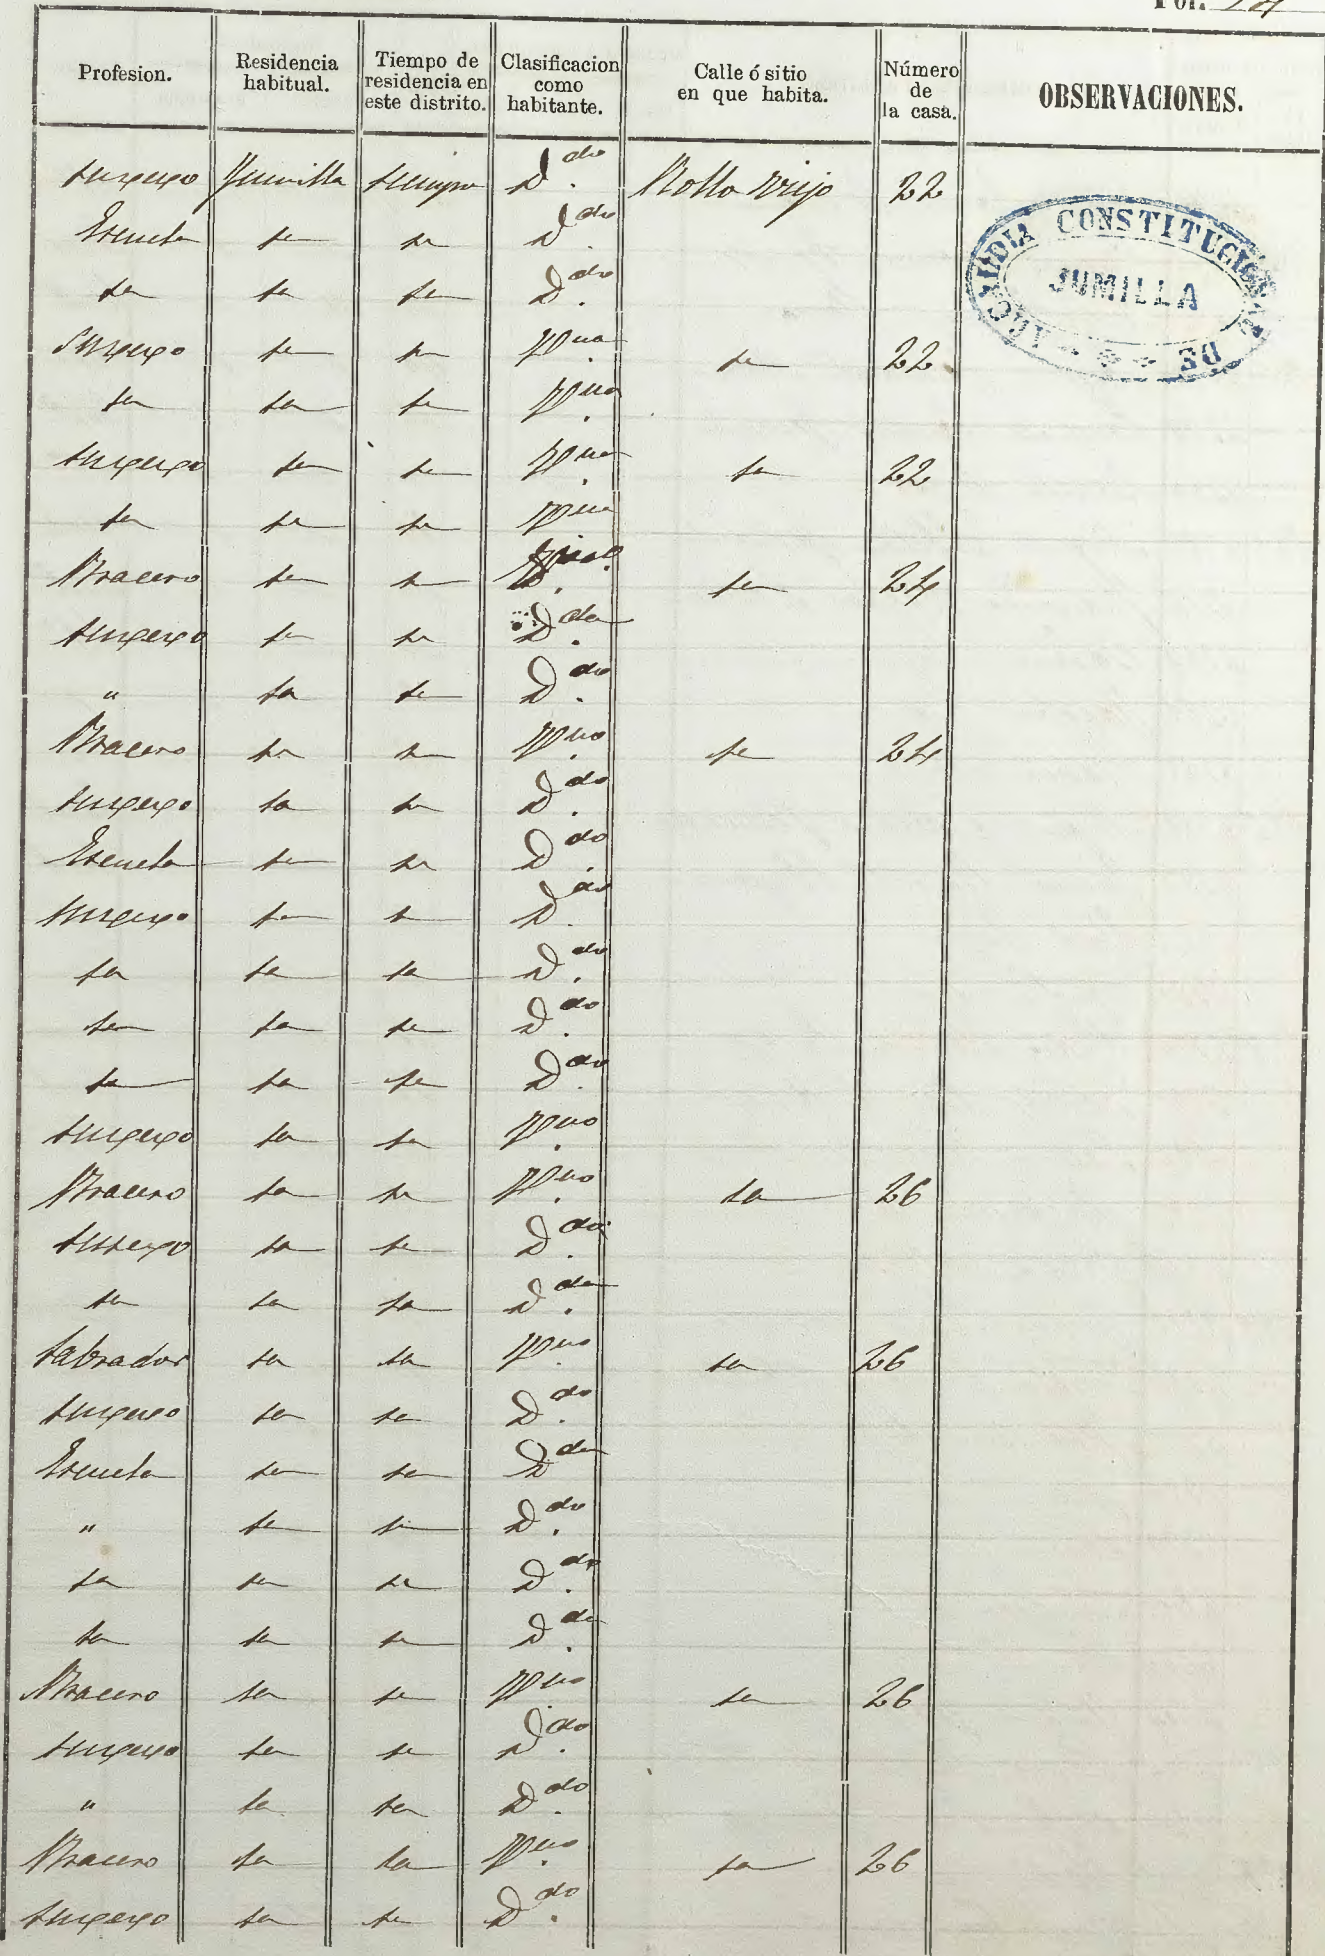 Fol.
Profesion. Residencia habitual. Tiempo de residencia en este distrito. Clasificacion como habitante. Calle ó sitio en que habita. Número de la casa. OBSERVACIONES.
Su sexo Jumilla siempre D.do Rollo viejo 22
Escuela id id D.do
id id id D.do
Su sexo id id id 22
id id id
Su sexo id id id 22
id id id
Bracero id id id 24
Su sexo id id D.da
" id id D.do
Bracero id id id 24
Su sexo id id D.do
Escuela id id D.do
Su sexo id id D.do
id id id D.do
id id id D.do
id id id D.do
Su sexo id id
Bracero id id id 26
Su sexo id id D.da
id id id D.da
Labrador id id id 26
Su sexo id id D.do
Escuela id id D.da
" id id D.do
id id id D.do
id id id D.da
Bracero id id id 26
Su sexo id id D.do
" id id D.do
Bracero id id id 26
Su sexo id id D.do
ALCALDIA CONSTITUCIONAL DE
JUMILLA